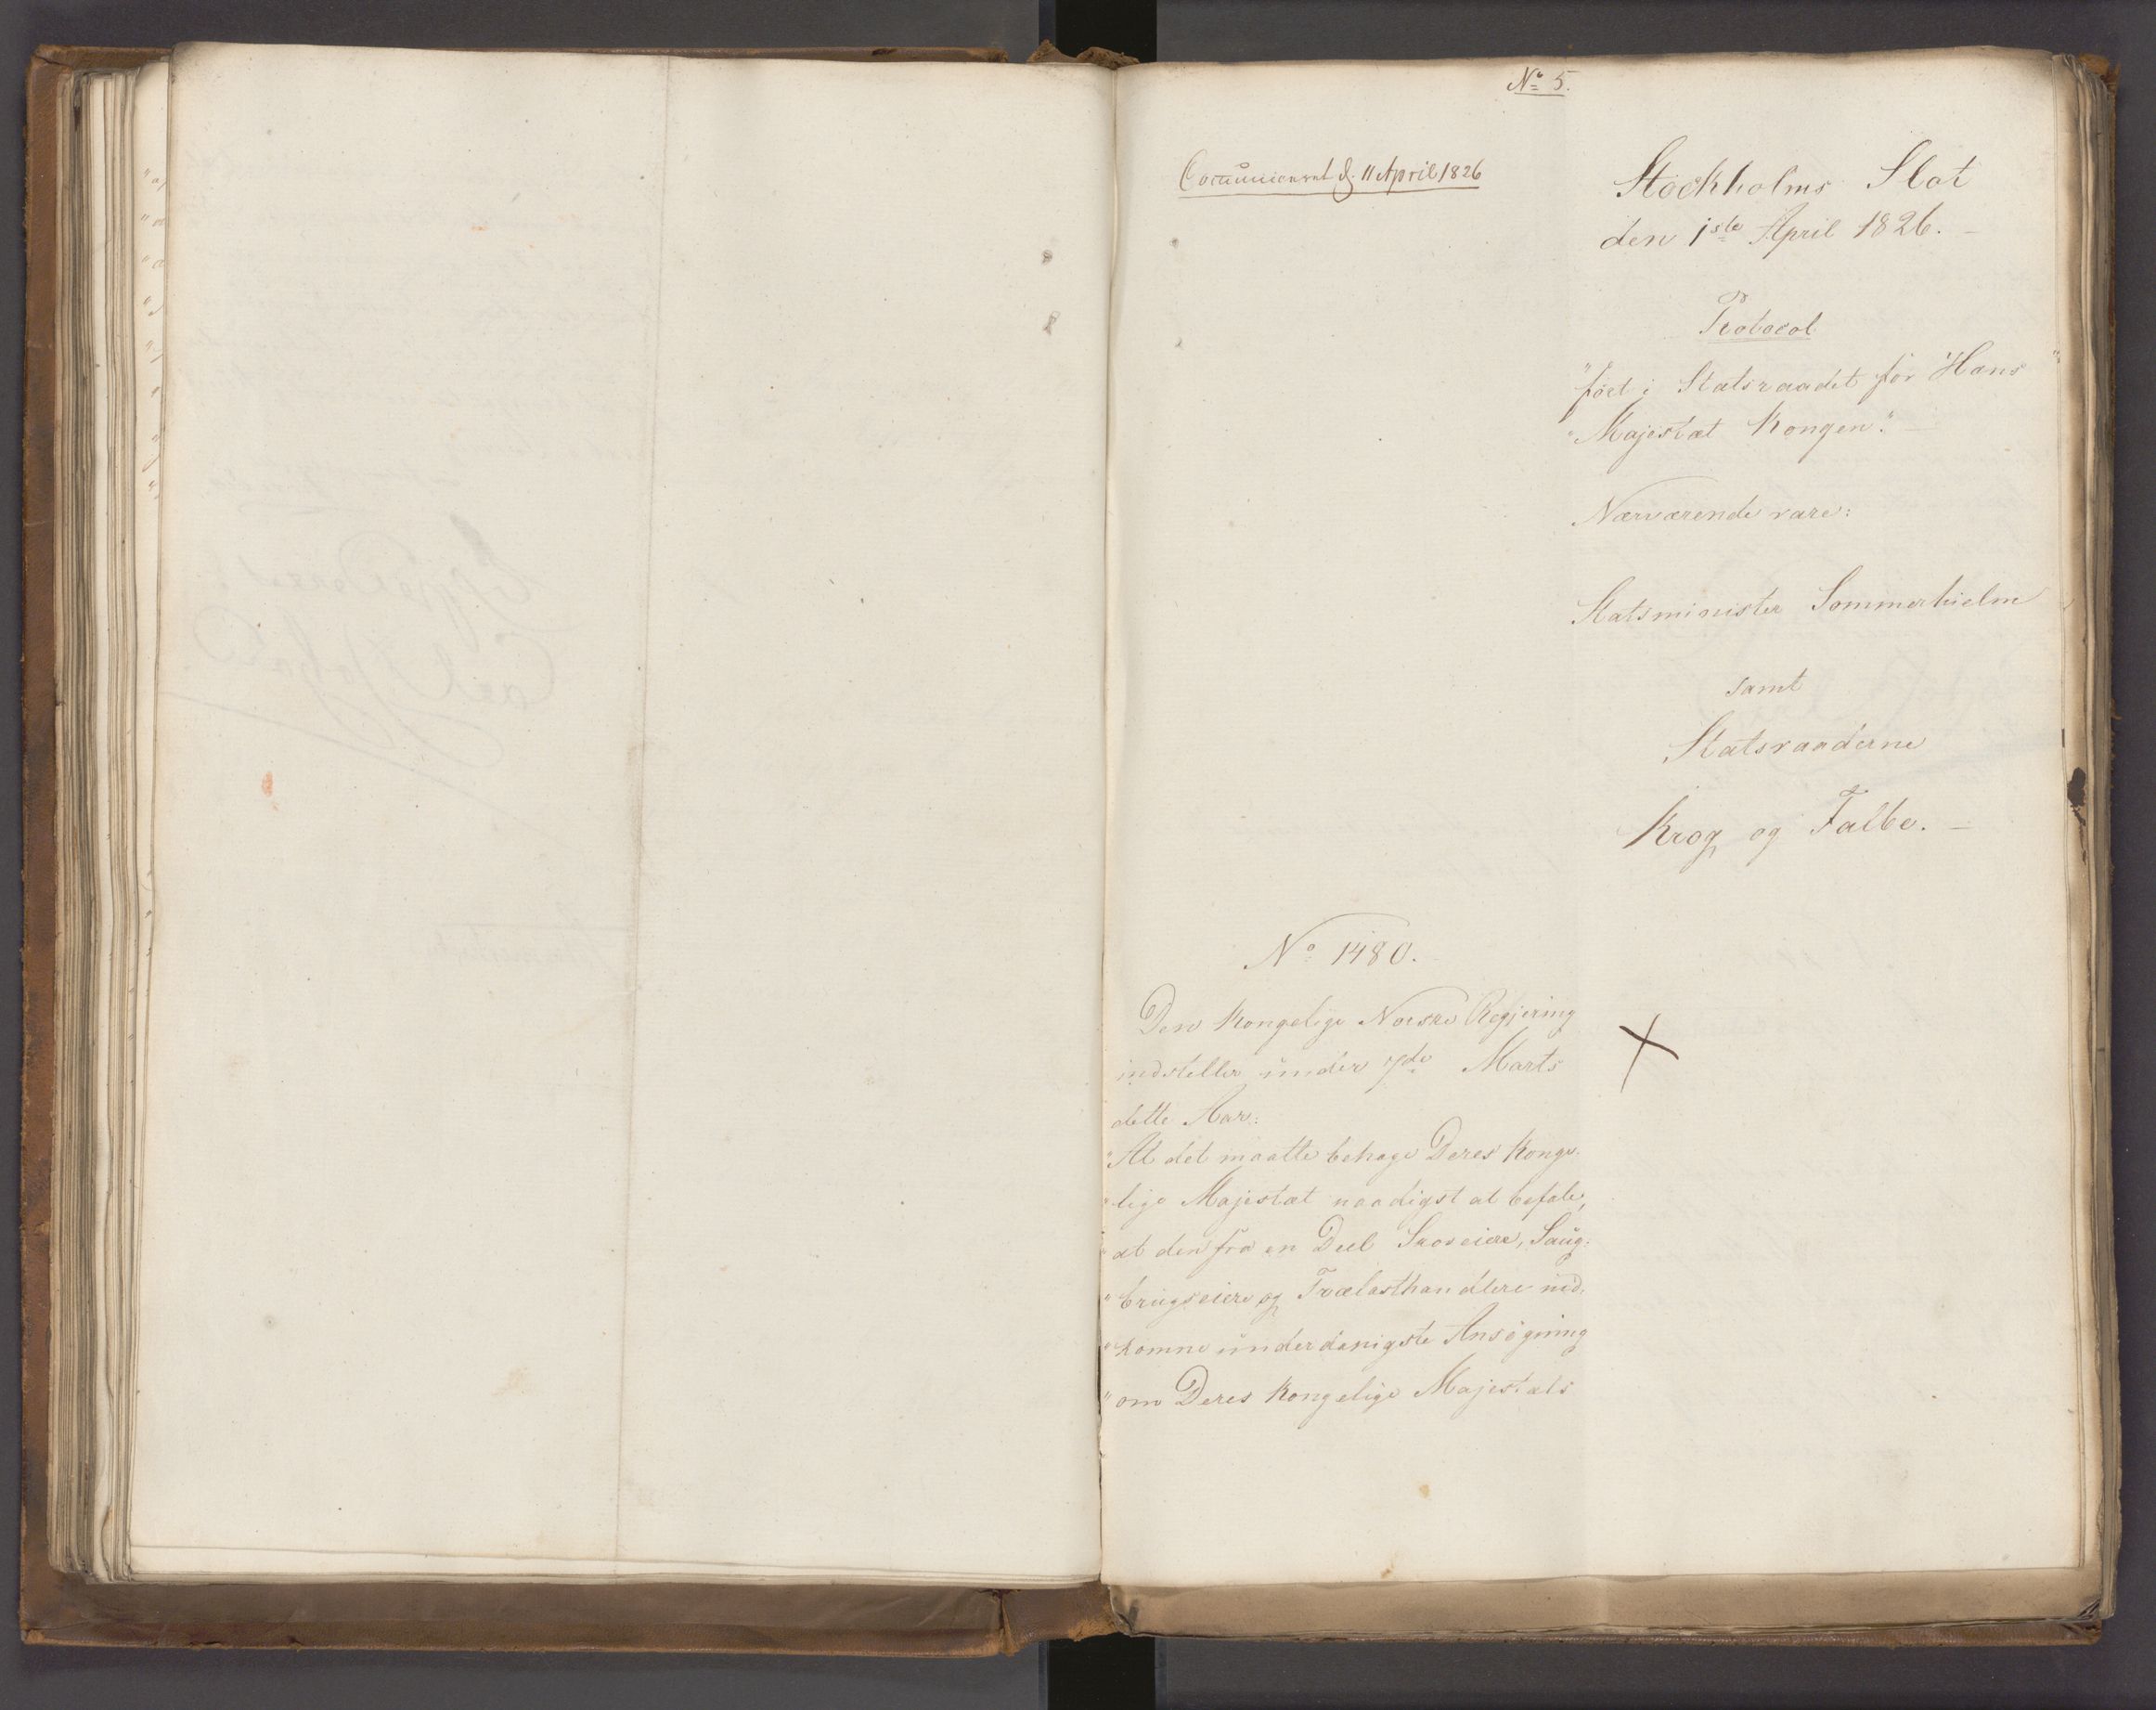 No 5.
Communiceret d. 11 April 1826
Stockholms Slot
den 1ste April 1826. —
Protocol
"ført i Statsraadet for Hans"
"Majestæt Kongen". —
Nærværende vare:
Statsminister Sommerhielm
samt
Statsraaderne
Krog og Falbe. —
No 1480.
Den Kongelige Norske Regjering
indstiller under 7de Marts
dette Aar:
"At det maatte behage Deres Konge-
"lige Majestæt naadigst at befale,
"at den fra en Deel Skoveiere, Saug-
"brugseiere og Trælasthandlere ind-
"komne underdanigste Ansøgning
"om Deres Kongelige Majestæts